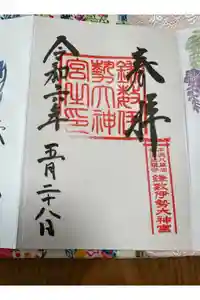 奉拝
鎌数伊勢大神宮
鎌数伊
勢大神
宮之印
令和六年
五月二十八日